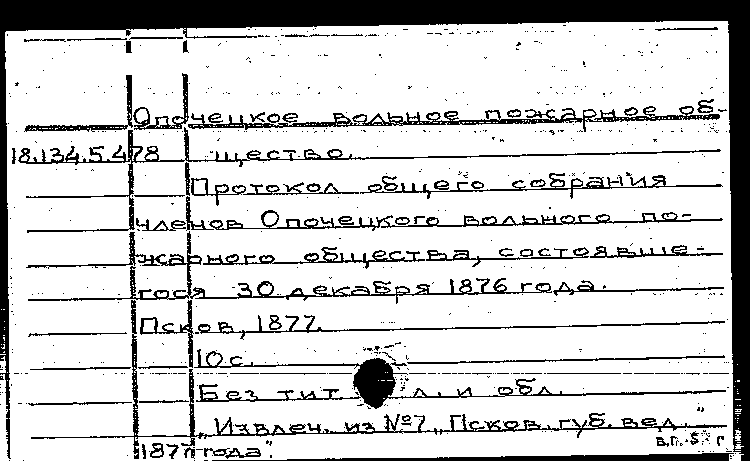 Опочецкое вольное пожарное об-
18.134.5.478 щество.
Протокол общего собрания
членов Опочецкого вольного по-
жарного общества, состоявше-
гося 30 декабря 1876 года.
Псков, 1877.
10 с.
Без тит л. и обл.
„Извлеч. из №7 „Псков. губ. вед."
1877 года".
в.п.